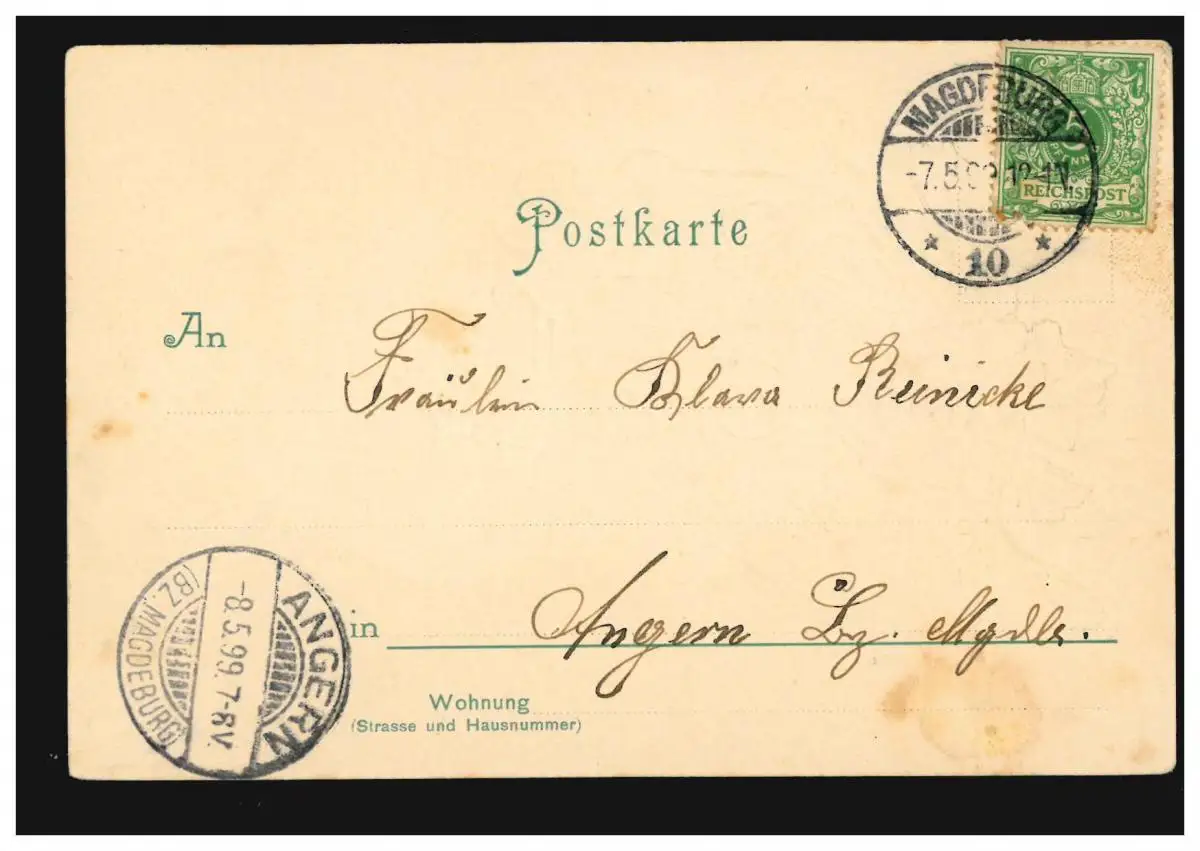 MAGDEBURG
-7.5.99.12-1N.
* 10 *
5
PFENNIG
REICHSPOST
Postkarte
An Fräulein Klara Reinicke
in Angern Bz. Mgdb.
Wohnung
(Strasse und Hausnummer)
ANGERN
-8.5.99.7-8V.
(BZ. MAGDEBURG)